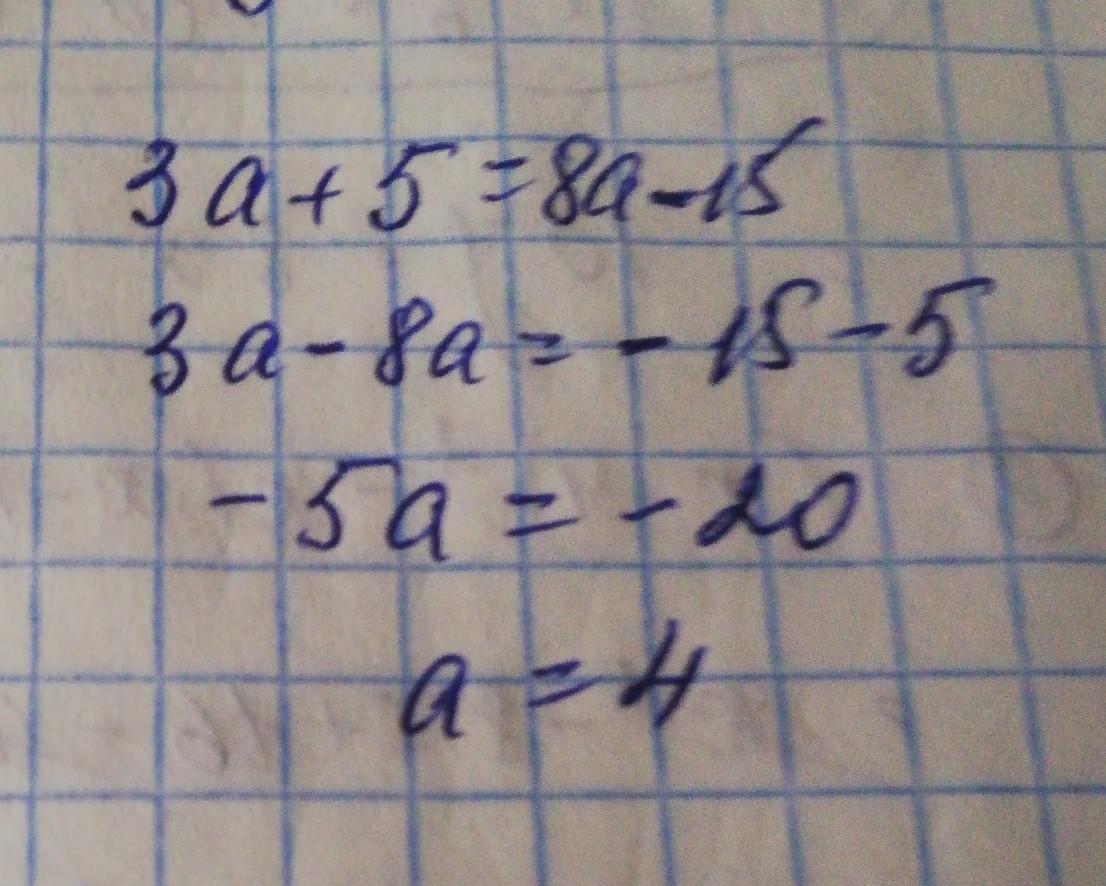 3a+5=8a-15
3a-8a=-15-5
-5a=-20
a=4